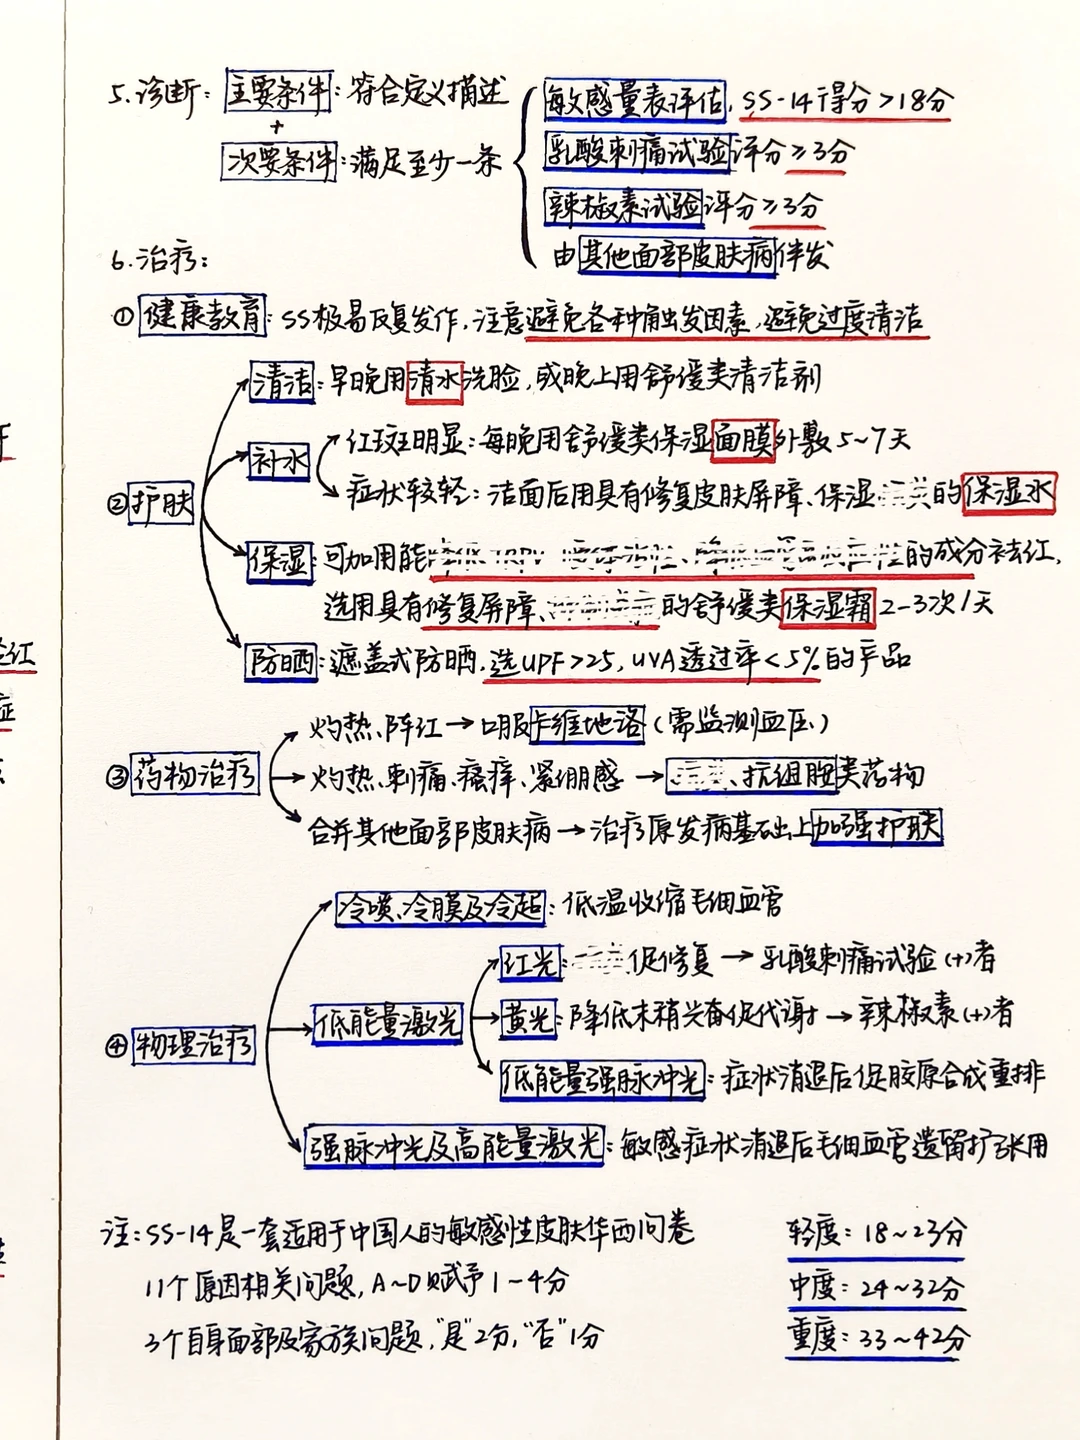 5.诊断：主要条件：符合定义描述
+
次要条件：满足至少一条
敏感量表评估，SS-14得分>18分
乳酸刺痛试验评分≥3分
辣椒素试验评分≥3分
由其他面部皮肤病伴发
6.治疗：
①健康教育：SS极易反复发作，注意避免各种触发因素，避免过度清洁
②护肤
清洁：早晚用清水洗脸，或晚上用舒缓类清洁剂
补水
红斑明显：每晚用舒缓类保湿面膜外敷5~7天
症状较轻：洁面后用具有修复皮肤屏障、保湿 的保湿水
保湿：可加用能 的成分祛红，
选用具有修复屏障、 的舒缓类保湿霜2-3次/天
防晒：遮盖式防晒，选UPF>25，UVA透过率<5%的产品
③药物治疗
灼热、阵红→口服卡维地洛（需监测血压）
灼热、刺痛、瘙痒、紧绷感→ 、抗组胺类药物
合并其他面部皮肤病→治疗原发病基础上加强护肤
④物理治疗
冷喷、冷膜及冷超：低温收缩毛细血管
低能量激光
红光： 促修复→乳酸刺痛试验(+)者
黄光：降低末稍兴奋促代谢→辣椒素(+)者
低能量强脉冲光：症状消退后促胶原合成重排
强脉冲光及高能量激光：敏感症状消退后毛细血管遗留扩张用
注：SS-14是一套适用于中国人的敏感性皮肤华西问卷
11个原因相关问题，A~D赋予1~4分
3个自身面部及家族问题，"是"2分，"否"1分
轻度：18~23分
中度：24~32分
重度：33~42分